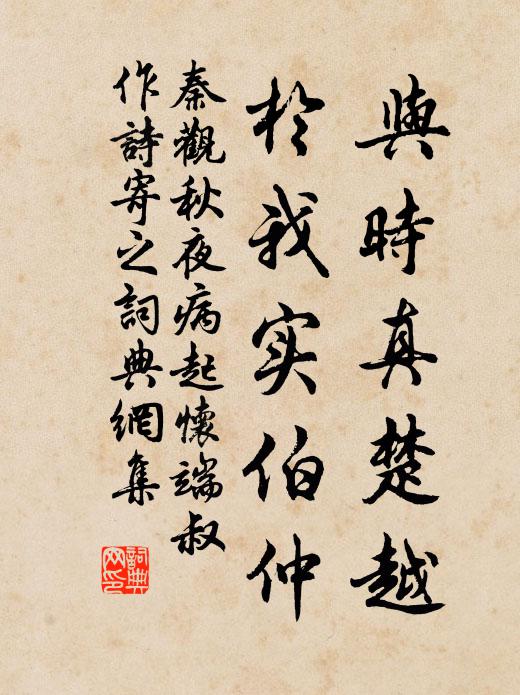 與時真楚越
於我实伯仲
秦觀秋夜病起懷端叔
作詩寄之詞典網集
詞典
网印